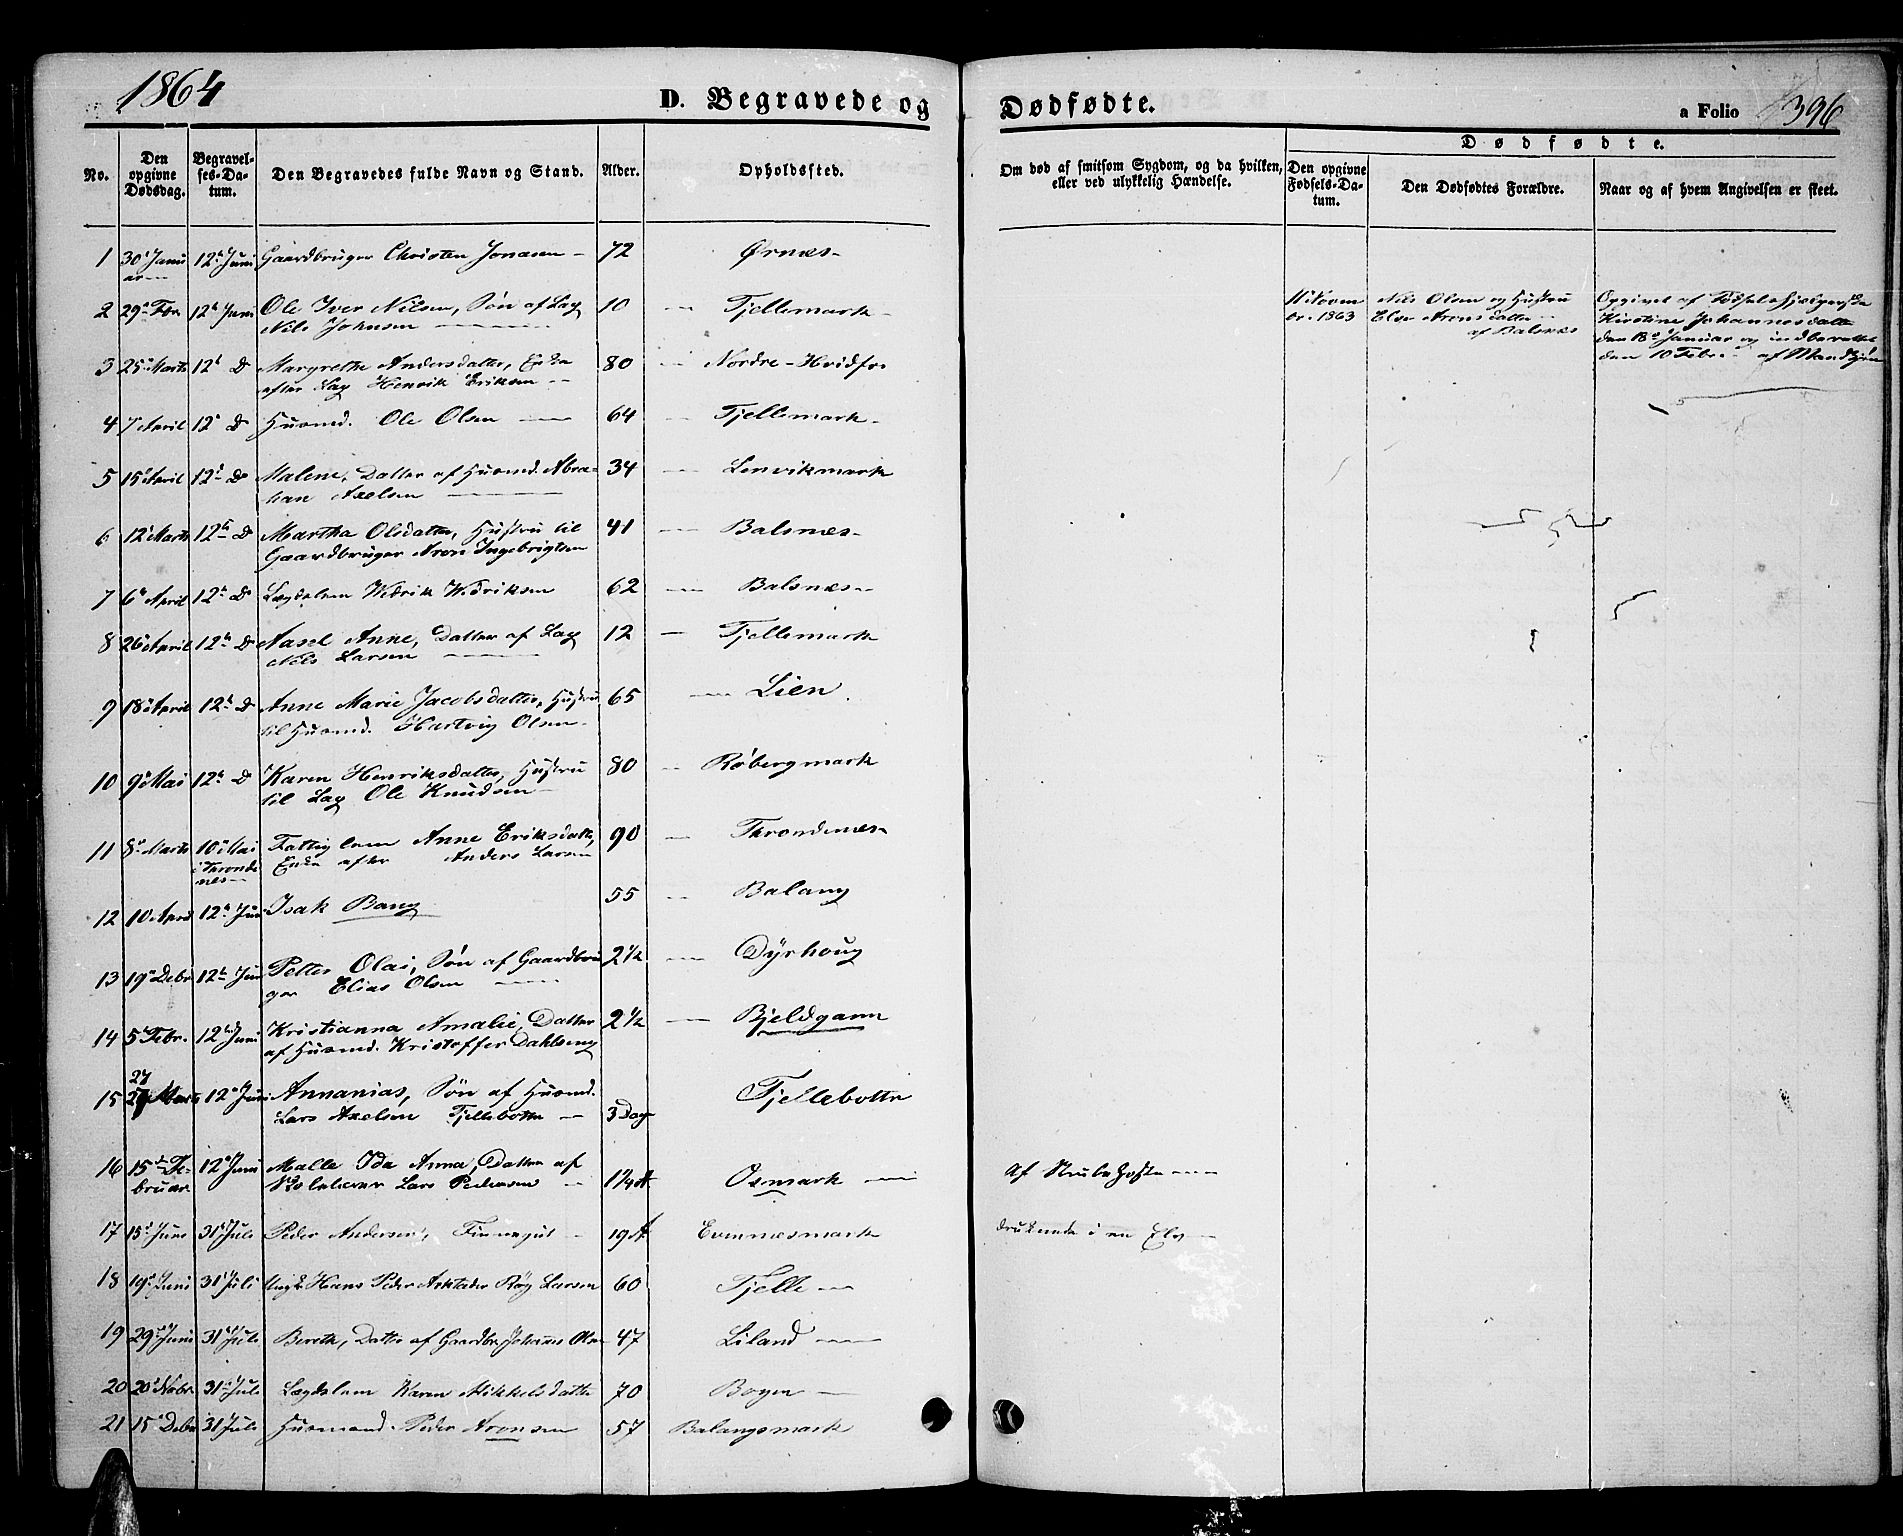 1864
D. Begravede og
Dødfødte.
a Folio 396
No.
Den opgivne Dødsdag.
Begravelses-Datum.
Den Begravedes fulde Navn og Stand.
Alder.
Opholdssted.
Om død af smitsom Sygdom, og da hvilken, eller ved ulykkelig Hændelse.
Dødfødte.
Den opgivne Fødsels-Datum.
Den Dødfødtes Forældre.
Naar og af hvem Angivelsen er skeet.
1 30 Januar 12 Juni Gaardbruger Christen Jonasen 72 Ørnæs
2 29 Febr 12 Juni Ole Iver Nilsen, Søn af Lag
Nils Johnsen 10 Fjellemark
Novem
br. 1863 Nils Olsen og Hustru
Elen Aronsdatter
af Balsnæs
Opgivet af Fødselshjelperske
Kirstine Johannesdatter
den 18 Januar og indberettet
den 10 Febr. af
3 25 Marts 12 D Margrethe Andersdatter, Enke
efter Lag Henrik Eriksen 80 Nordre-Hvidfor
4 7 April 12 D Husmd. Ole Olsen 64 Fjellemark
5 15 April 12 D Malene, Datter af Husmd. Abra-
ham Axelsen 34 Lenvikmark
6 12 Marts 12 D Martha Olsdatter, Hustru til
Gaardbruger Aron Ingebrigtsen 41 Balsnæs
7 6 April 12 D Lægdslem Wedrik Wedriksen 62 Balsnæs
8 26 April 12 D Aasel Anne, Datter af Lag
Nils Larsen 12 Fjellemark
9 18 April 12 D Anne Marie Jacobsdatter, Hustru
til Husmd. Hartvig Olsen 65 Lien
10 9 Mai 12 D Karen Henriksdatter, Hustru
til Lag Ole Knudsen 80 Røbergmark
11 8 Marts 10 Mai
i Thronde
nes Fattiglem Anne Eriksdatter,
Enke efter Anders Larsen 90 Throndenes
12 10 April 12 Juni Isak Bang 55 Balang
13 19 Debr 12 Juni Petter Olai, Søn af Gaardbru
ger Elias Olsen 2½ Dyrhoug
14 5 Febr. 12 Juni Kristianna Amalie, Datter
af Husmd. Kristoffer Dahlseng 2½ Bjeldgann
15 27 Marts 12 Juni Annanias, Søn af Husmd.
Lars Axelsen Fjellebotn 3 Dag Fjellebotn
16 15 Fe-
bruar 12 Juni Malle Ida Anna, Datter af
Lars Pedersen 1¼ A Osmark Af Strubehoste
17 15 Juni 31 Juli Peder Andersen, Finnegut 19 A Evenesmark druknede i en Elv
18 19 Juni 31 Juli Hans Peder Røg Larsen 60 Fjelle
19 29 Juni 31 Juli Bereth, Datter af Gaardbr. Johannes Olsen 47 Liland
20 20 Nobr. 31 Juli Lægdslem Karen Mikkelsdatter 70 Bogen
21 15 Debr 31 Juli Husmand Peder Aronsen 57 Balangsmark